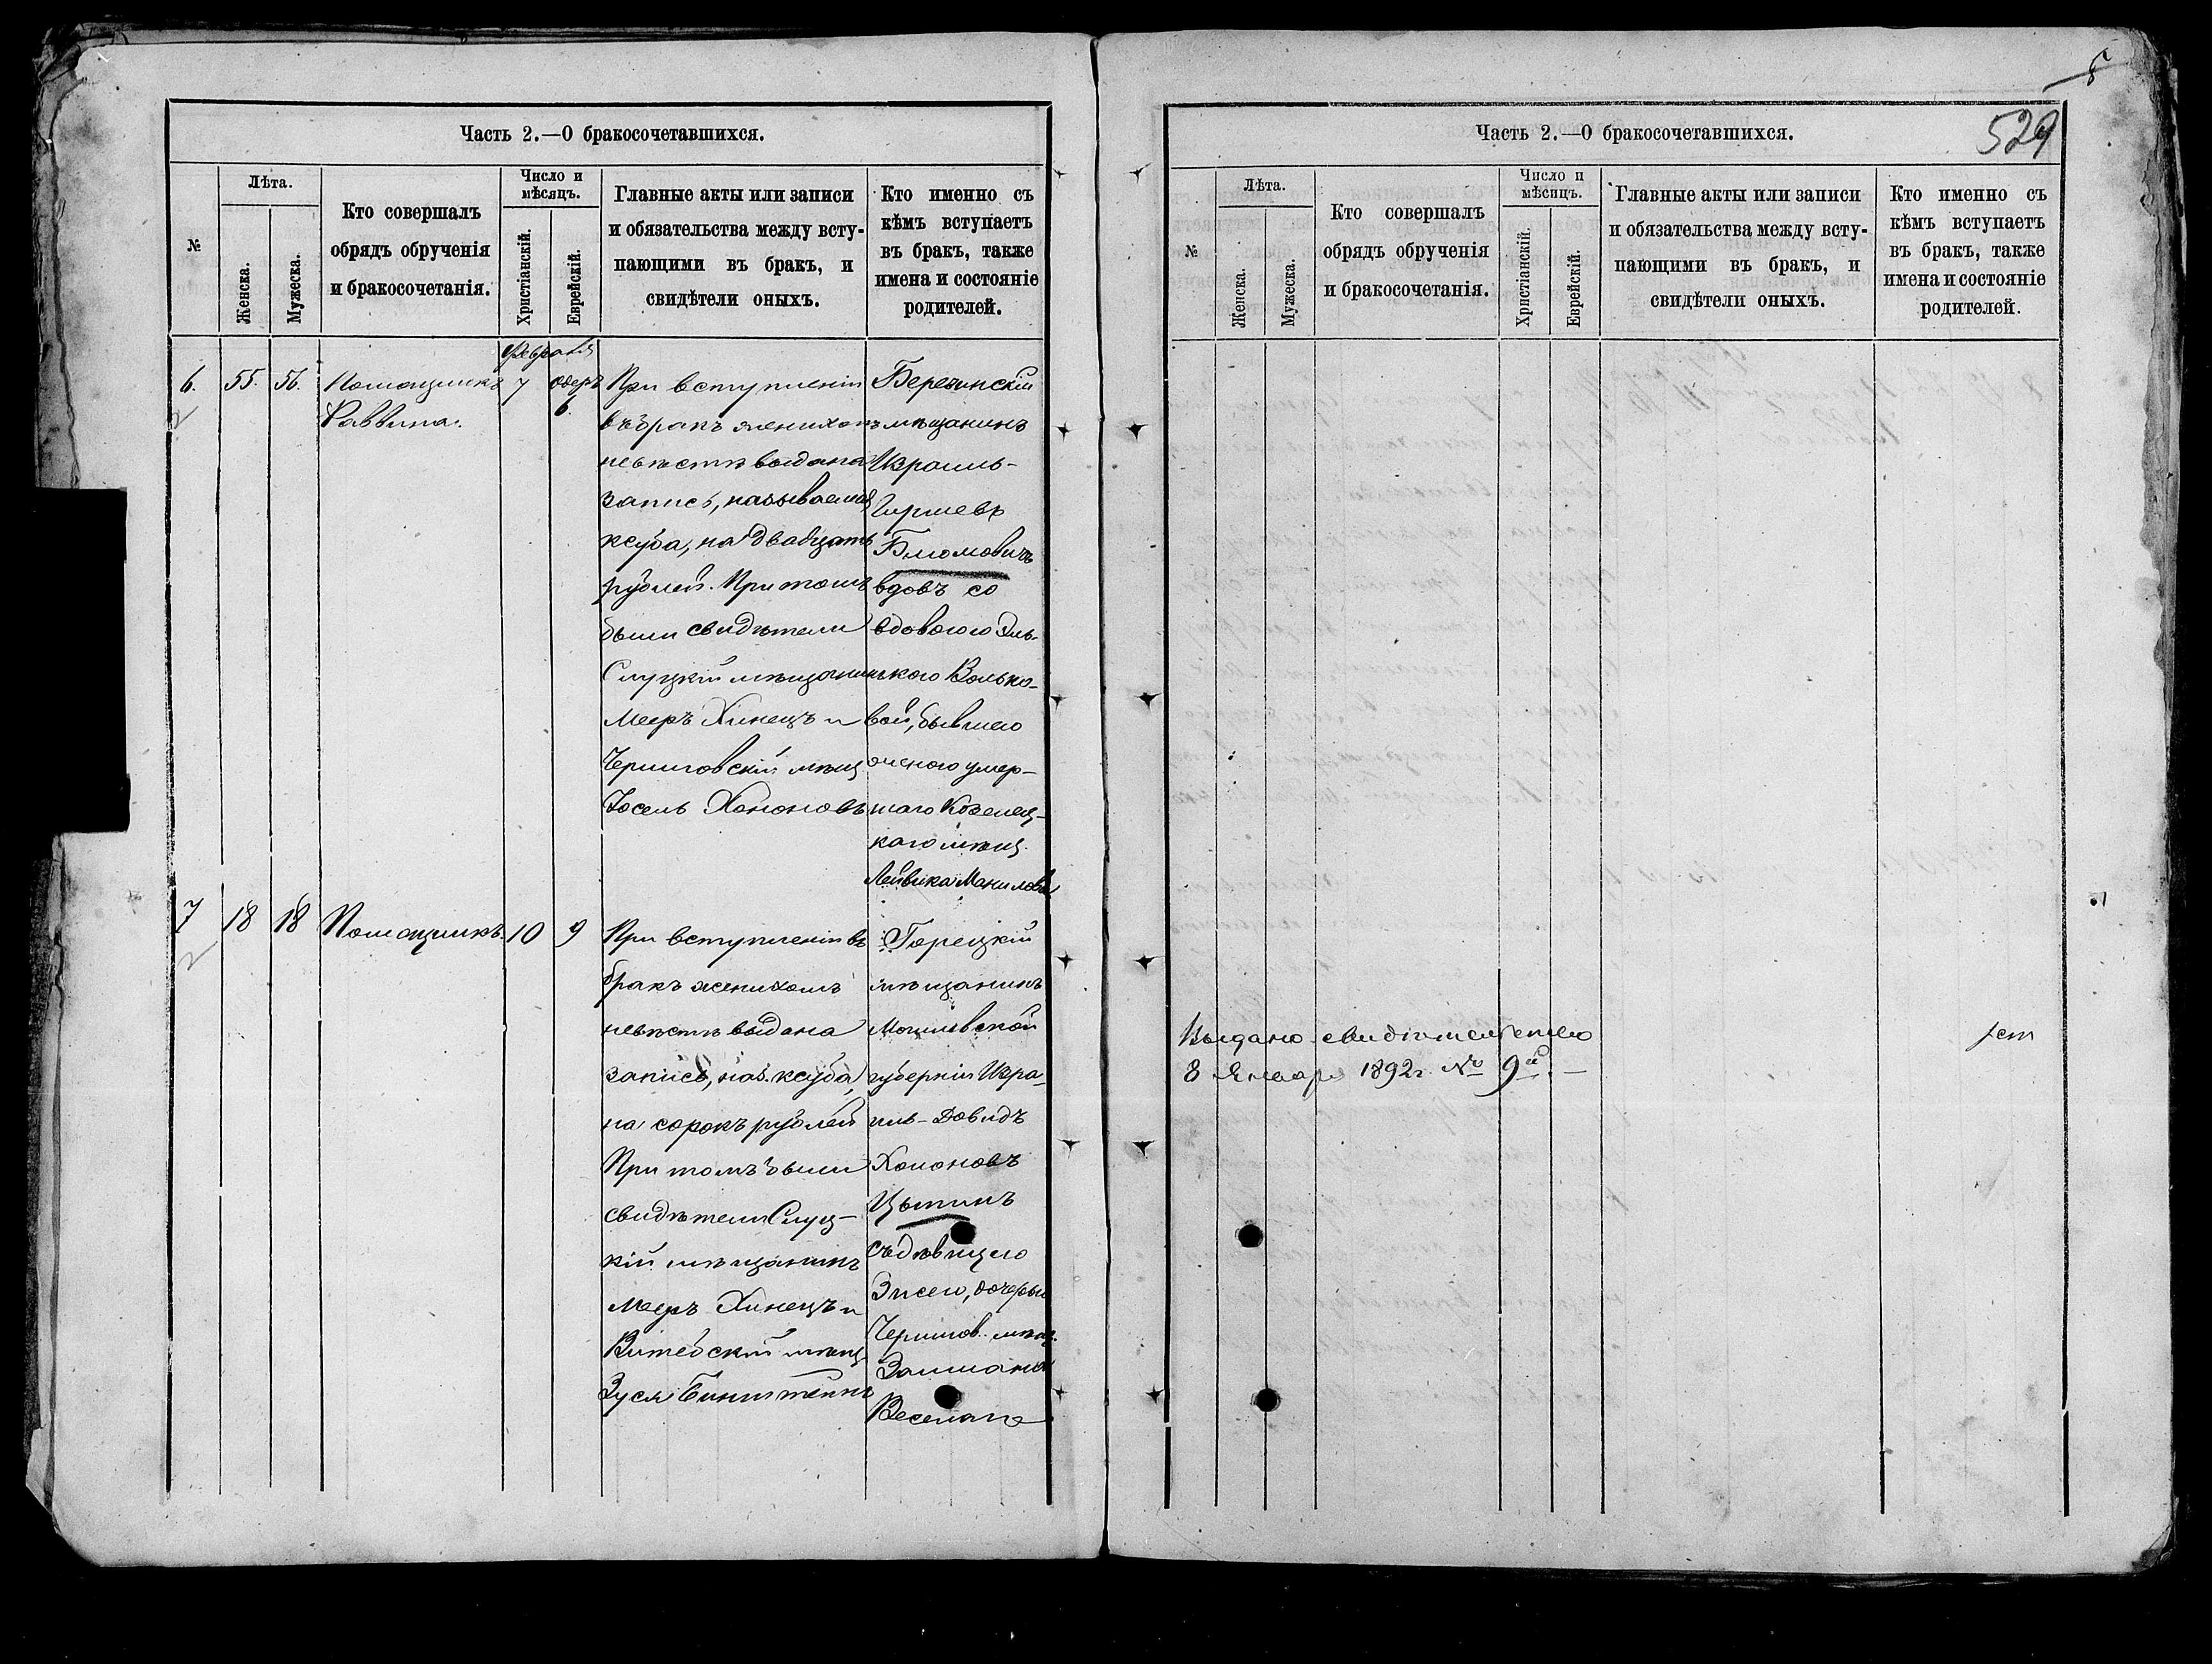 Часть 2.—О бракосочетавшихся.
№
Лѣта.
Женска.
Мужеска.
Кто совершалъ
обрядъ обрученія
и бракосочетанія.
Число и
мѣсяцъ.
Христіанскій.
Еврейскій.
Главные акты или записи
и обязательства между всту-
пающими въ бракъ, и
свидѣтели оныхъ.
Кто именно съ
кѣмъ вступаетъ
въ бракъ, также
имена и состояніе
родителей.
Февраля
6. 55. 56. Помощникъ 7 Одеръ
Раввина. 6.
При вступленіи
въ бракъ женихомъ
невѣстѣ выдана
запись, называемая
ксуба, на двадцать
рублей. При томъ
были свидѣтели
Слуцкій мѣщанинъ
Мееръ Хинецъ и
Черниговскій мѣщ
Іосель Хононовъ
Березинскій
мѣщанинъ
Израиль-
Гиршевъ
Блюмовичъ
вдовъ со
вдовою Эль-
кою Волько-
вой, бывшею
женою умер-
шаго Козелец-
каго мѣщ.
Лейвика Манилова
7 18 18 Помощникъ. 10 9
При вступленіи въ
бракъ женихомъ
невѣстѣ выдана
запись, наз. ксуба,
на сорокъ рублей
При томъ были
свидѣтели Слуц-
кій мѣщанинъ
Мееръ Хинецъ и
Витебскій мѣщ
Зуся
Горецкій
мѣщанинъ
Могилевской
губерніи Изра-
иль-Довидъ
Хононовъ
Цыпинъ
съ дѣвицею
Зисею, дочерью
Чернигов. мѣщ.
Залмана
Веселаго
Часть 2.—О бракосочетавшихся.
5
529
№
Лѣта.
Женска.
Мужеска.
Кто совершалъ
обрядъ обрученія
и бракосочетанія.
Число и
мѣсяцъ.
Христіанскій.
Еврейскій.
Главные акты или записи
и обязательства между всту-
пающими въ бракъ, и
свидѣтели оныхъ.
Кто именно съ
кѣмъ вступаетъ
въ бракъ, также
имена и состояніе
родителей.
Выдано свидѣтельство
8 Января 1892 г. № 9